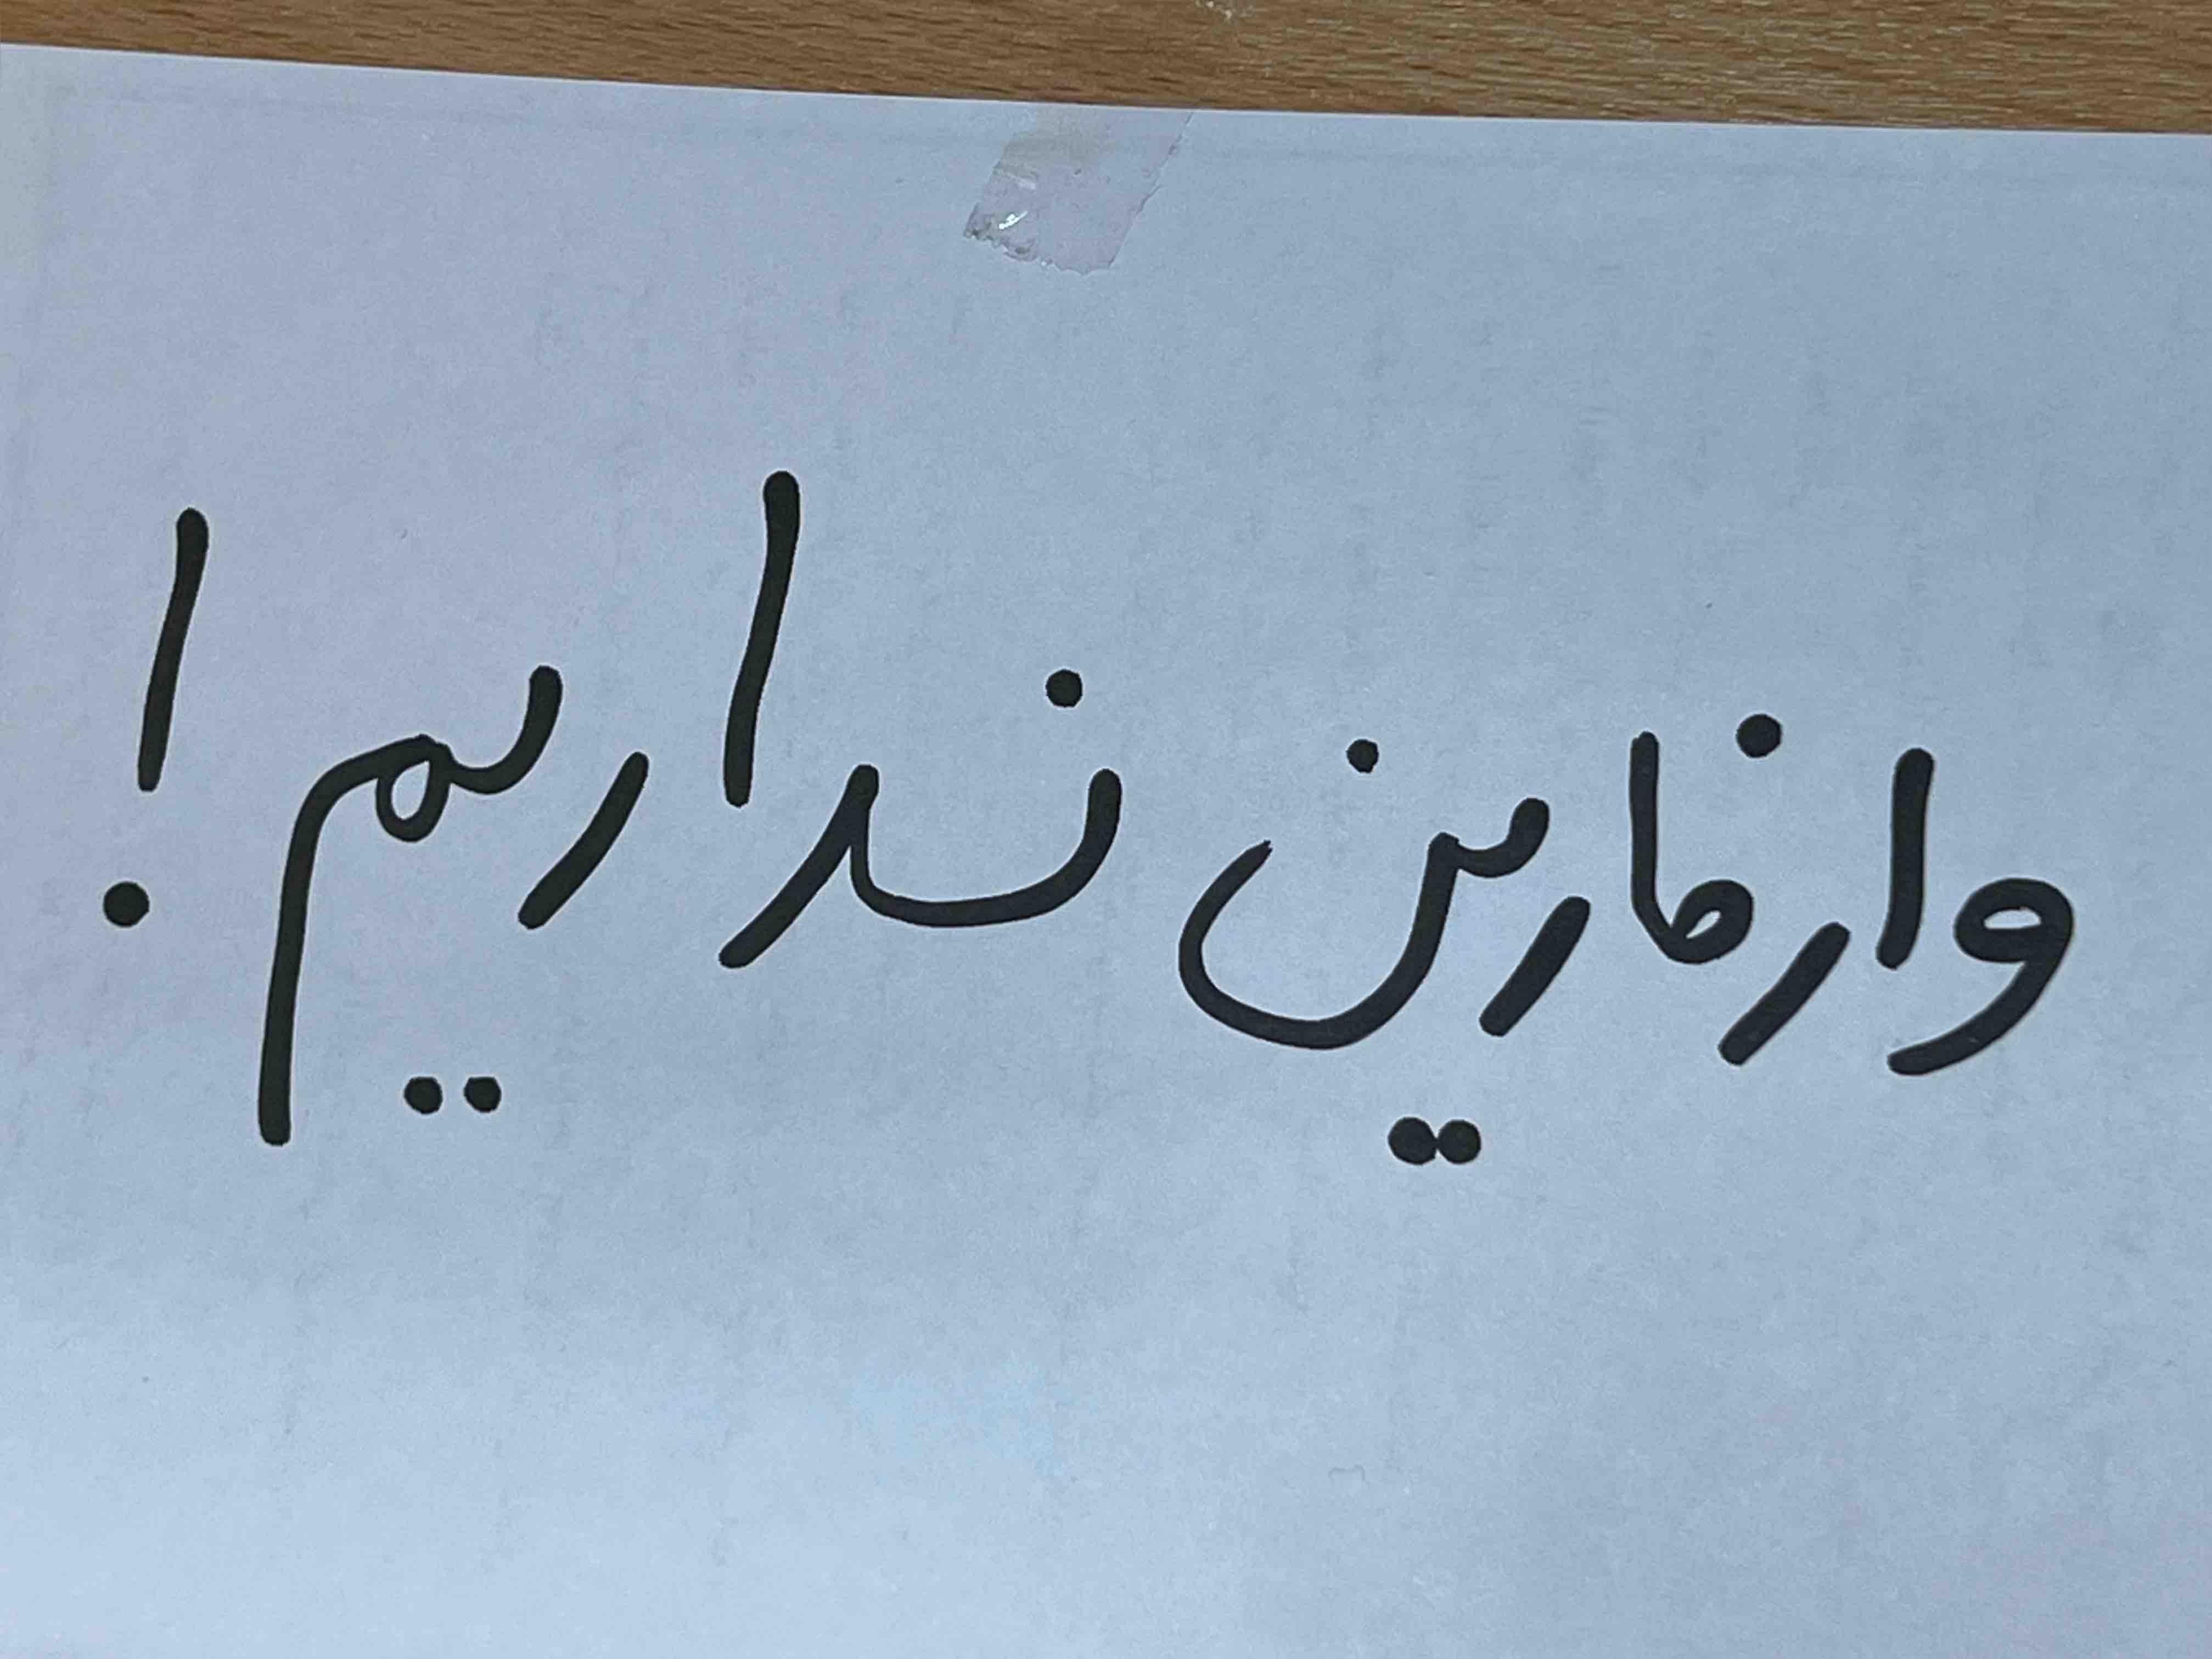 وارفارین نداریم!